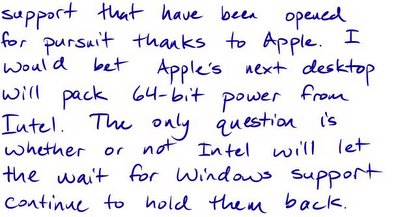 support that have been opened
for pursuit thanks to Apple. I
would bet Apple's next desktop
will pack 64-bit power from
Intel. The only question is
whether or not Intel will let
the wait for Windows support
continue to hold them back.